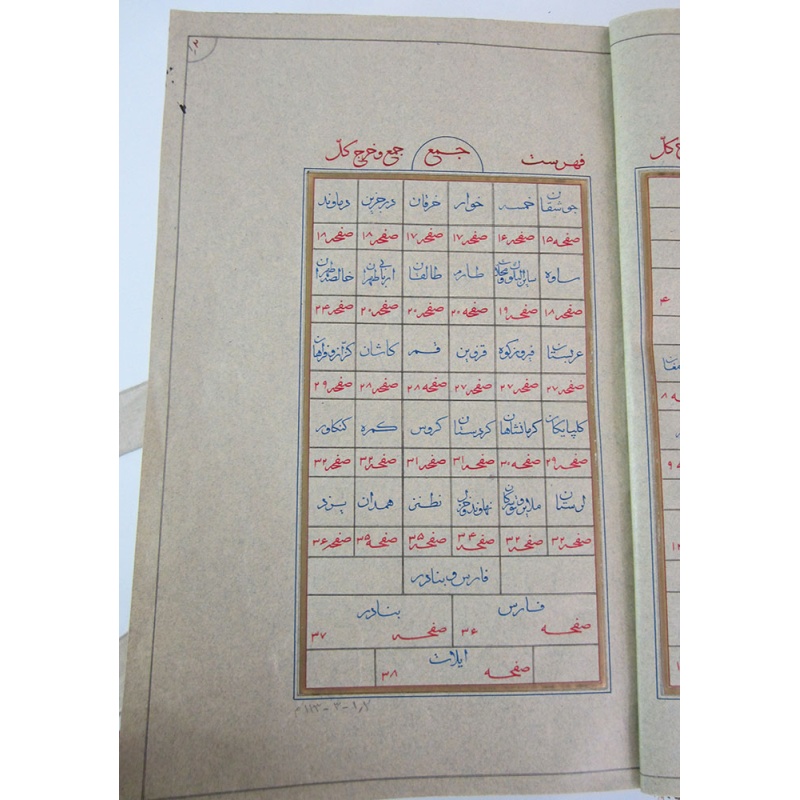 ۲
فهرست جمع جمع و خرج کل
جوشقان خمسه خوار خرقان درجزین دماوند
صفحه ۱۵ صفحه ۱۶ صفحه ۱۷ صفحه ۱۷ صفحه ۱۸ صفحه ۱۸
ساوه طارم طالقان خالصه طهران
صفحه ۱۸ صفحه ۱۹ صفحه ۲۰ صفحه ۲۰ صفحه ۲۰ صفحه ۲۴
عربستان فیروزکوه قزوین قم کاشان کزاز و فراهان
صفحه ۲۷ صفحه ۲۷ صفحه ۲۷ صفحه ۲۸ صفحه ۲۸ صفحه ۲۹
کلپایکان کرمانشاهان کردستان کروس کمره کنکاور
صفحه ۲۹ صفحه ۳۰ صفحه ۳۱ صفحه ۳۱ صفحه ۳۲ صفحه ۳۲
لرستان ملایر و تویسرکان نهاوند و خزل نطنز همدان یزد
صفحه ۳۲ صفحه ۳۲ صفحه ۳۴ صفحه ۳۵ صفحه ۳۵ صفحه ۳۶
فارس و بنادر
فارس بنادر
صفحه ۳۶ صفحه ۳۷
ایلات
صفحه ۳۸